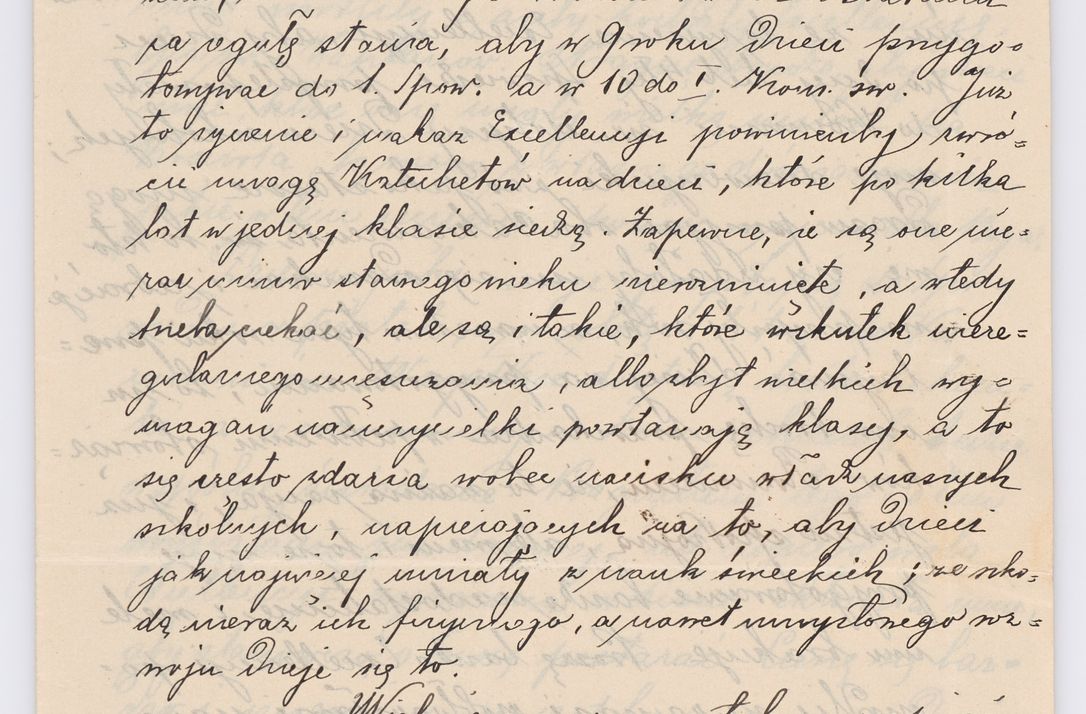 za regułę stawia, aby w 9 roku dzieci przygo=
towywać do 1. Spow. a w 10 do I. Kom. św. Już
to życzenie i nakaz Excellencyi powinienby zwró=
cić uwagę Katechetów na dzieci, które po kilka
lat w jednej klasie siedzą. Zapewne, że są one nie=
raz mimo starszego wieku nierozwinięte, a wtedy
trzeba czekać, ale są i takie, które wskutek niere=
gularnego uczęszczania, albo zbyt wielkich wy=
magań nauczycielki powtarzają klasę, a to
się często zdarza wobec nacisku władz naszych
szkolnych, napierających na to, aby dzieci
jak najwięcej umiały z nauk świeckich; ze szko=
dą nieraz ich fizycznego, a nawet umysłowego roz=
woju dzieje się to.